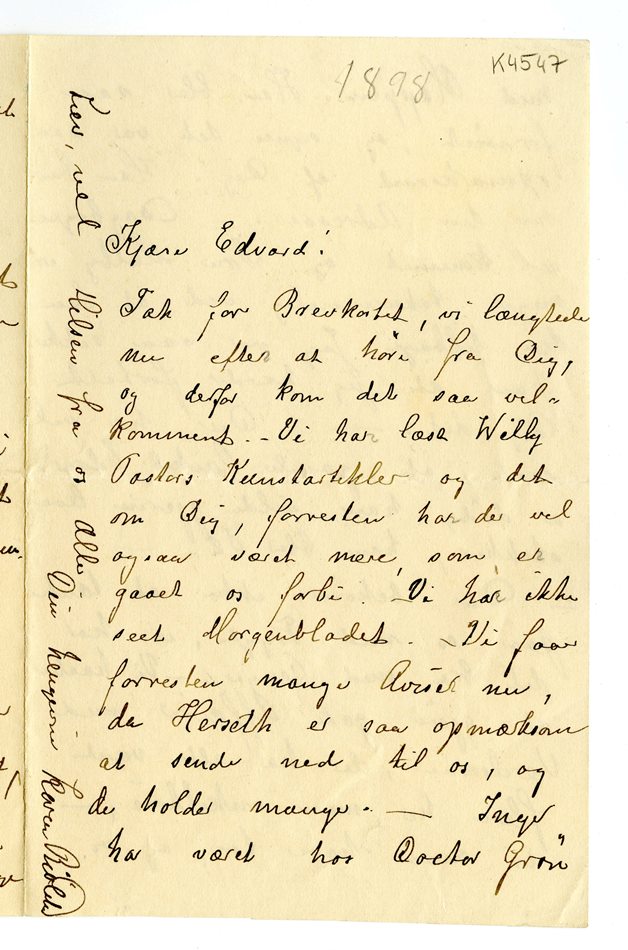 1898
K4547
Kjære Edvard!
Tak for Brevkortet, vi længtede
nu efter at höre fra Dig,
og derfor kom det saa vel-
komment. - Vi har læst Willy
Pastors Kunstartikler og det
om Dig, forresten har der vel
ogsaa været mere, som er
gaaet os forbi. Vi har ikke
seet Morgenbladet. - Vi faar
forresten mange Aviser nu,
da Herseth er saa opmærksom
at sende ned til os, og
de holder mange. — Inger
har været hos Doctor Grön
Lev vel Hilsen fra os Alle.
Din hengivne Karen Bjölstad